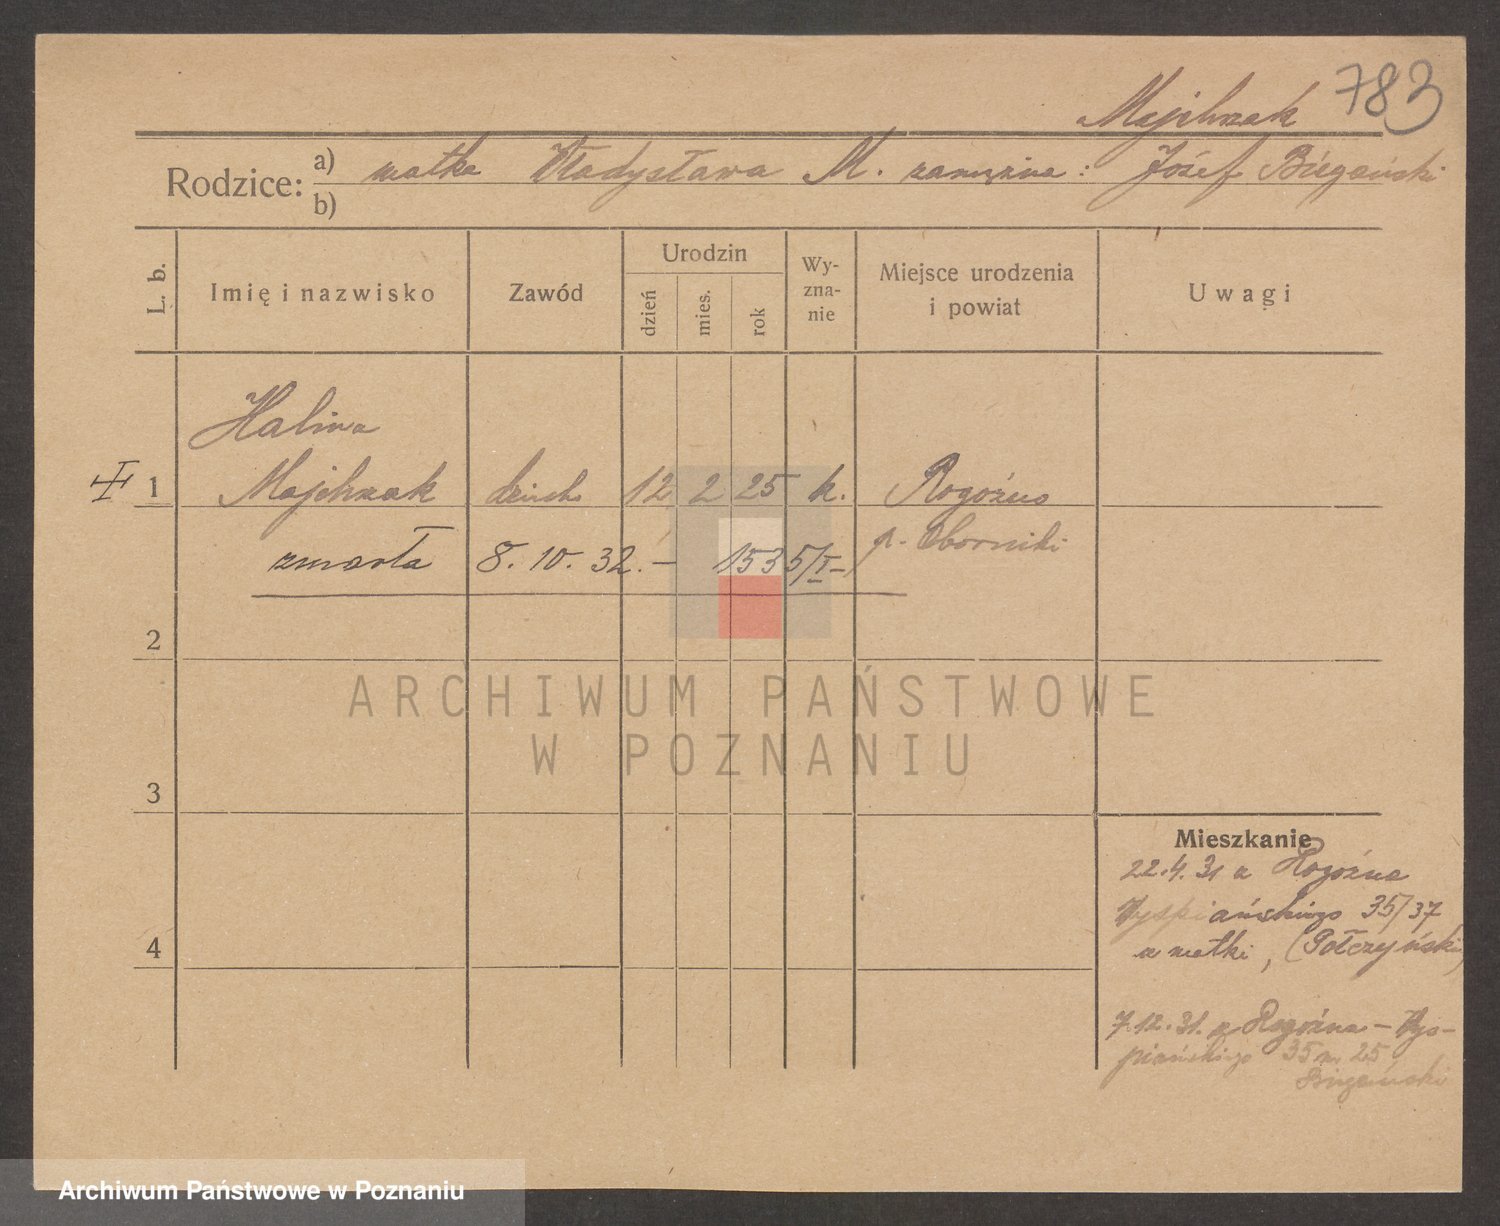 Majchrzak 783
Rodzice: a) matka Władysława M. zamężna: Józef Biegański
b)
L. b.
Imię i nazwisko
Zawód
Urodzin
dzień
mies.
rok
Wy-
zna-
nie
Miejsce urodzenia
i powiat
Uwagi
Halina
1 Majchrzak dziecko 12 2 25 k. Rogoźno
p. Oborniki
zmarła 8. 10. 32. – 1535/I –
2
3
4
Mieszkanie
22.4.31 z Rogoźna
Wyspiańskiego 35/37
u matki, (Połczyński)
7.12.31. z Rogoźna – Wys-
piańskiego 35 m. 25
Biegański
ARCHIWUM PAŃSTWOWE
W POZNANIU
Archiwum Państwowe w Poznaniu